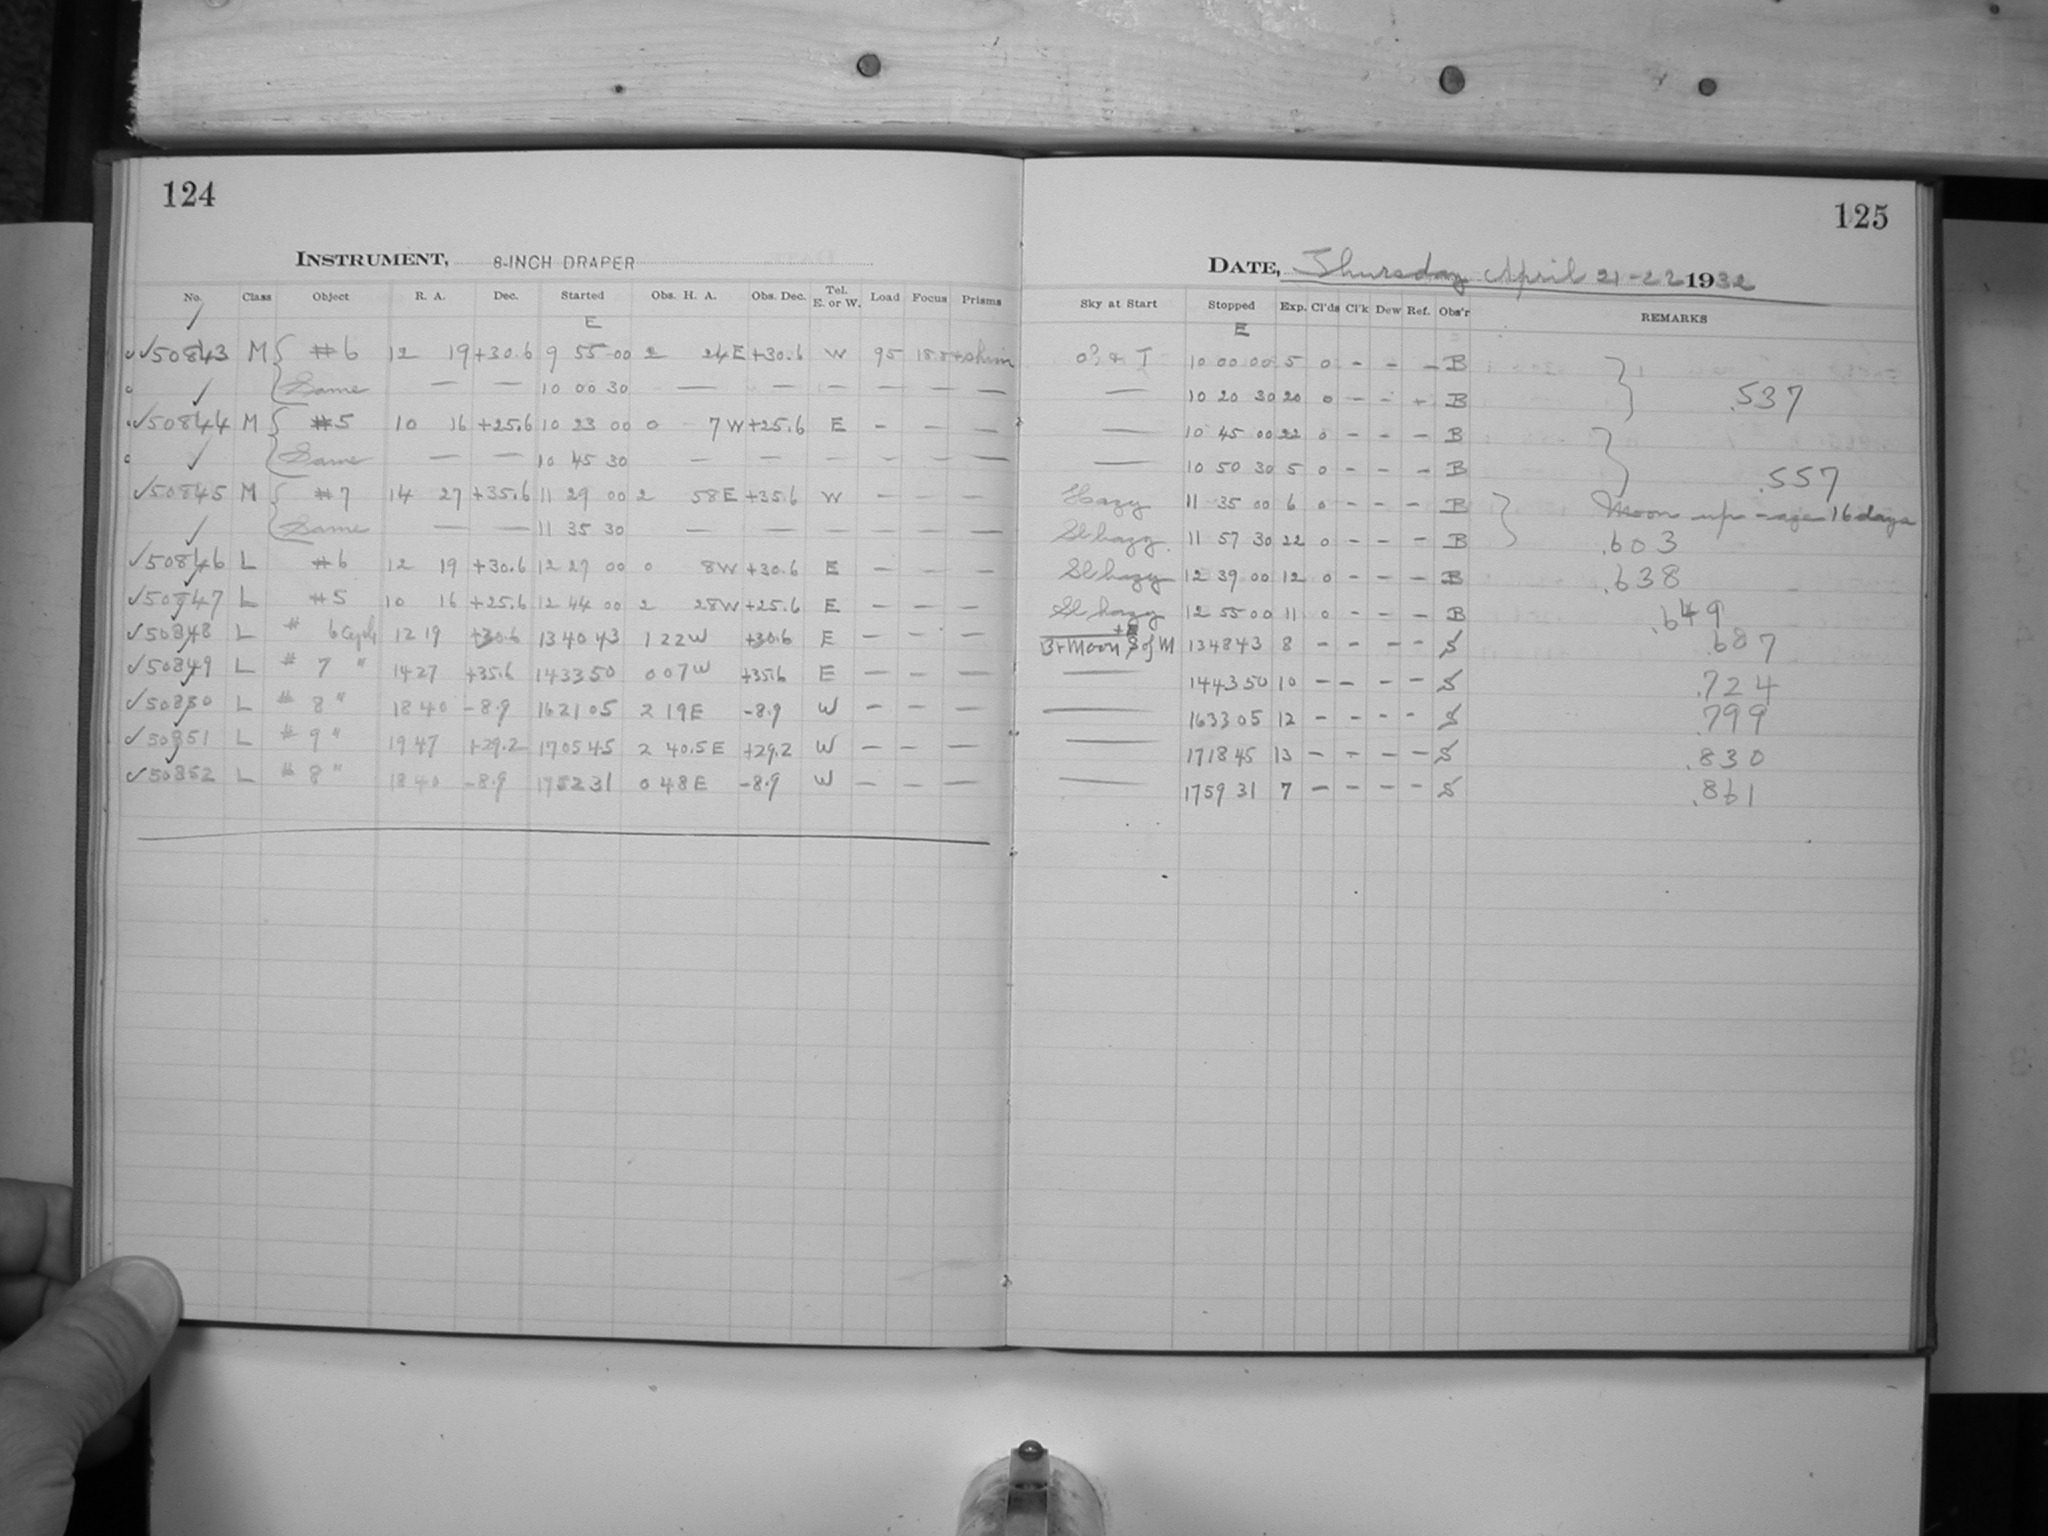 124
INSTRUMENT, 8-INCH DRAPER
No. Class Object R. A. Dec. Started Obs. H. A. Obs. Dec. Tel. E. or W. Load Focus Prisms
E
✓50843 M { #6 12 19 +30.6 9 55 00 2 24E +30.6 W 95
Same — — 10 00 30 — — — — — —
✓50844 M { #5 10 16 +25.6 10 23 00 0 7W +25.6 E — — —
Same — — 10 45 30 — — — — — —
✓50845 M { #7 14 27 +35.6 11 29 00 2 58E +35.6 W — — —
Same — — 11 35 30 — — — — — —
✓50846 L #6 12 19 +30.6 12 27 00 0 8W +30.6 E — — —
✓50847 L #5 10 16 +25.6 12 44 00 2 28W +25.6 E — — —
✓50848 L # 6 Ceph 12 19 +30.6 13 40 43 1 22W +30.6 E — — —
✓50849 L # 7 " 14 27 +35.6 14 33 50 0 07W +35.6 E — — —
✓50850 L # 8 " 18 40 -8.9 16 21 05 2 19E -8.9 W — — —
✓50851 L # 9 " 19 47 +29.2 17 05 45 2 40.5E +29.2 W — — —
✓50852 L # 8 " 18 40 -8.9 17 52 31 0 48E -8.9 W — — —
125
DATE, Thursday April 21-22 1932
Sky at Start Stopped Exp. Cl'ds Cl'k Dew Ref. Obs'r REMARKS
E
10 00 00 5 0 — — — B
— 10 20 30 20 0 — — B } .537
— 10 45 00 22 0 — — — B
— 10 50 30 5 0 — — — B } .557
Hazy 11 35 00 6 0 — — — B } Moon up - age 16 days
Sl hazy. 11 57 30 22 0 — — — B .603
Sl hazy 12 39 00 12 0 — — — B .638
Sl hazy 12 55 00 11 0 — — — B .649
Br Moon S of M 13 48 43 8 — — — — S .687
— 14 43 50 10 — — — — S .724
— 16 33 05 12 — — — — S .799
— 17 18 45 13 — — — — S .830
— 17 59 31 7 — — — — S .861